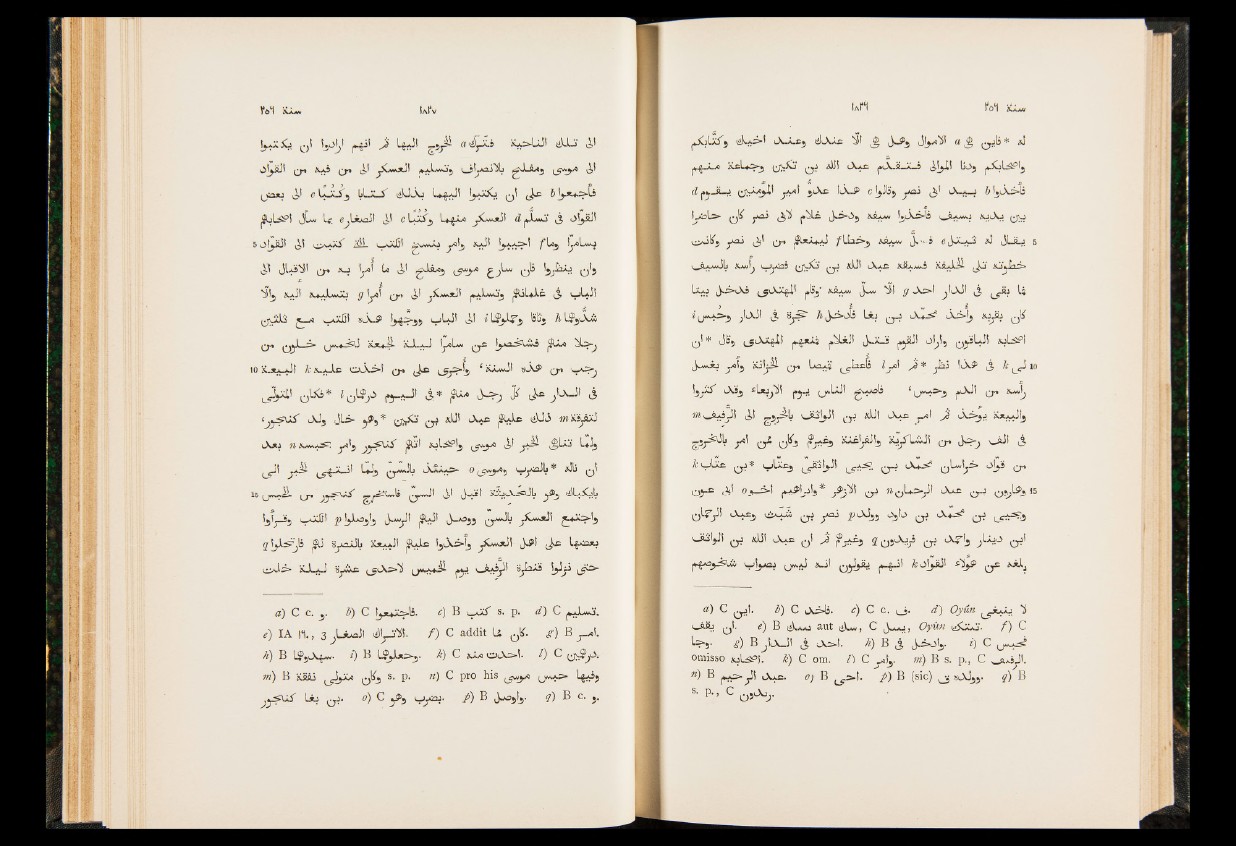 سنة ٢٥٦ ١٨٣٦
له *فاين a فى الاموال وهل فى الّا عندك وعند اخيك وكتّابكم
واصحابكم ودنا الموالى فتقدّم عبد الله بن تكين وجماعة منهم
فأخذوا b بيد ابى نصر وقالوا c هذا عدوّ امير المؤمنين يقوم d
بين يديه بسيف فأخذوا سيفه ودخل غلام لابى نصر كان حاضرا
5 يقال له ثيتل e فسلّ سيفه وخطا f ليمنعهم من ابى نصر وكانت
خطوته تلى الخليفة فسبقه عبد الله بن تكين فضرب رأسه بالسيف
فما بقى فى الدار احد g الّا سلّ سيفه وقام المهتدى فدخل بيتا
كان بقربه وأخذ محمّد بن بغا فأدخل h حجرة فى الدار وحبس i
اصحابه الباقون واراد القوم قتل الغلام فمنعهم المهتدى وقال *ان
10 لى k فى هذا نظر *ثم امر l فأعطى قميصا من الخزانة وأمر بغسل
رأسه من الدم وحبس، فاصبح الناس يوم الاربعاء وقد كثروا
والبيعة يؤخذ ثم امر عبد الله بن الواثق بالخروج الى الرفيف m
فى الف رجل من الشاكريّة والفراغنة وغيرهم وكان ممن امر بالخروج
من قوّاد خراسان محمّد بن يحيى الواثقىّ وعتّاب *بن عتّاب k
15 وهارون بن عبد الرحمان n بن الازهر *وابراهيم اخو o ابى عون
ويحيى بن محمّد بن داود وولد p نصر بن شبث وعبد الرحمان
ابن دينار واحمد بن فريدون q وغيرهم ثم ان عبد الله بن الواثق
بلغه عن هؤلاء القوّاد k انهم يقولون انه ليس بصواب شخوصهم
a) C اين. b) C فاخذ. c) C c. ف. d) Oyûn لا ينبغى
ان يقف. e) B نسك aut سك, C , Oyûn تمتك. f) C
وجا. g) B احد فى الدار. h) B وادخل فى. i) C فحبس
omisso اصحابه. k) C om. l) C وامر. m) B s. p., C
n) B عبد الرحيم. o) B احى. p) B (sic) وولده. q) B
s. p., C
سنة ٢٥٦ ١٨٣٧
الى تلك الناحية فترك a الخروج اليها ثم انهم ارادوا ان يكتبوا
الى موسى ومفلح بالانصراف وتسليم العسكر الى من فيه من القوّاد
فأجتمعوا b على ان يكتبوا اليهما بذلك كتابا وكتبا c الى بعض
القوّاد فى تسلّم d العسكر منهما وكتبا c الى الصغار e بما سأل اصحابهم
5 بسامرّا وما f اجيبوا اليه وامر بنسخ الكتب التى كتبت الى القوّاد
وان ينظروا فان سارع موسى ومفلح الى ما أمرا به من الاقبال الى
الباب فى غلمانهم وتسليم العسكر الى من أمرا g بتسليمه اليه والّا
شدّوهما h وثاقا وحملوهما i الى الباب ووجّهوا هذه الكتب مع ثلثين
رجلا منهم فشخصوا عن سامرّا ليلة الجمعة لخمس خلون من
10 رجب من هذه السنة، وأجرى على من اخذت عليه k البيعة
فى الدار على كلّ رجل منهم *فى اليوم درهمان l *فكان المتولّى
لتفرقة m ذلك عليهم عبد الله بن تكين *وهو خال ولد كنجور،
ولمّا انتهى الخبر الى موسى واصحابه اتّهم كنجور وامر بحبسه n بعد
ان ناله *بالضرب وموسى o حينئذ بالسنّ ولمّا انتهى الخبر الى
15 بايكباك وهو بالحديثة اقبل الى السنّ فاستخرج كنجور من الحبس
واجتمع العسكر بالسنّ ووصل اليهم الرسل واوصلوا p الكتب وقرأوا
بعضها على اهل العسكر وأخذوا عليهم البيعة بالنصرة لهم فارتحلوا q
حتى نزلوا قنطرة الرفيف يوم الخميس لاحدى عشرة ليلة خلت
a) C c. و. b) C فاجتمعوا. c) B كتب s. p. d) C تسليم.
e) IA ١٦٠, 3 الاتراك الصغار. f) C addit كان لما. g) B امر.
h) B . i) B وجعلوهما. k) C احدث منه. l) C درهمين.
m) B وفيها كان متولى نفقة s. p. n) C pro his حبس موسى
كنجور بن بغا. o) C يضرب وهو. p) B واوصل. q) B c. و.